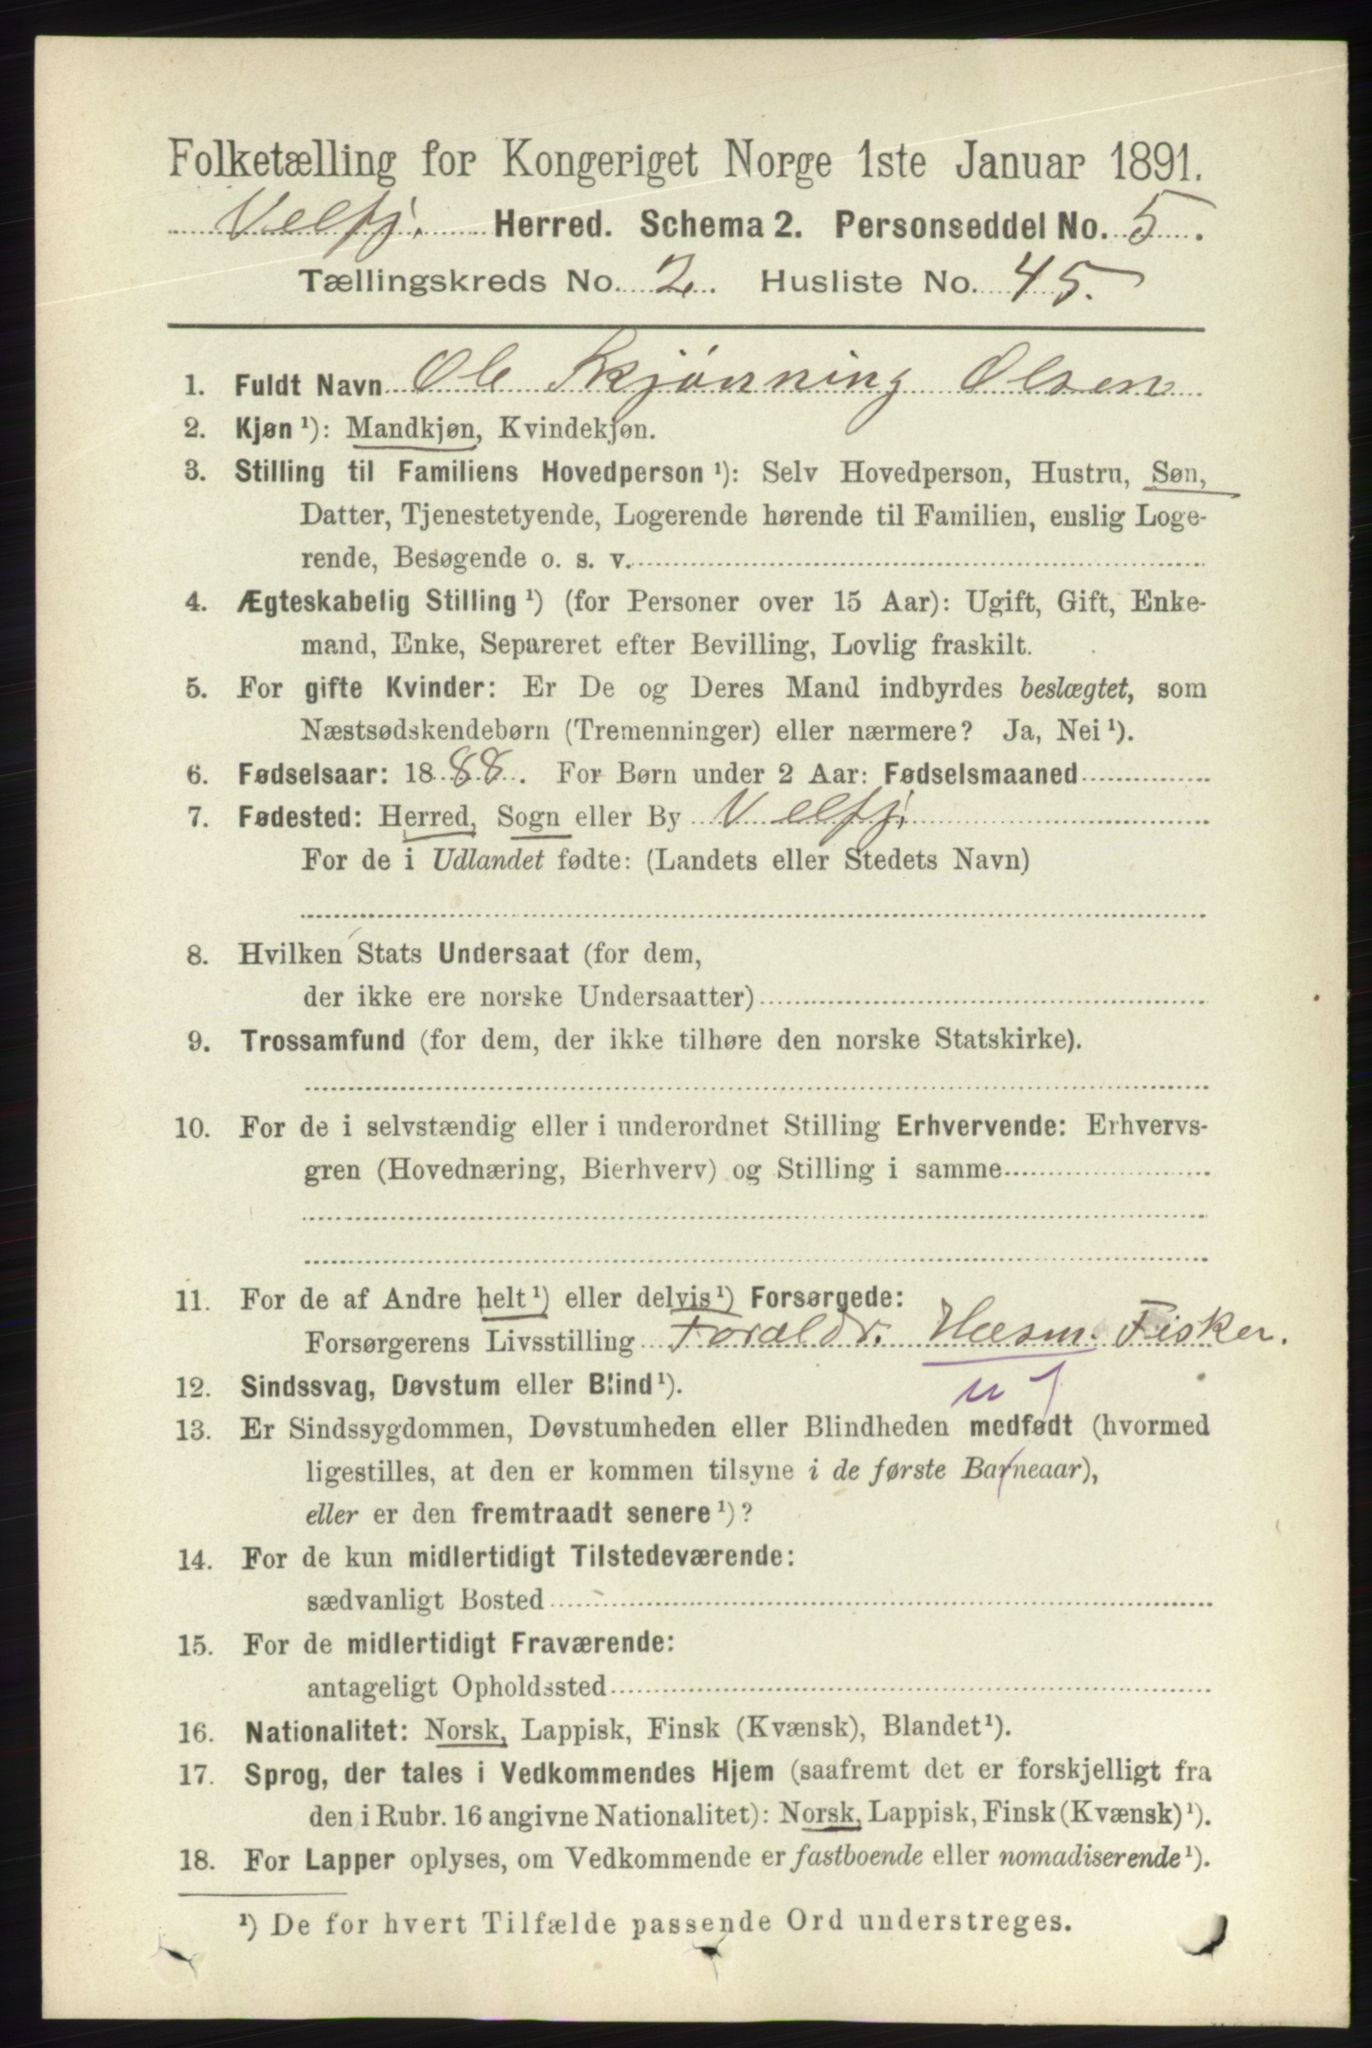 Folketælling for Kongeriget Norge 1ste Januar 1891.
Velfj. Herred. Schema 2. Personseddel No. 5.
Tællingskreds No. 2. Husliste No. 45.
1. Fuldt Navn Ole Skjønning Olsen
2. Kjøn ¹): Mandkjøn, Kvindekjøn.
3. Stilling til Familiens Hovedperson ¹): Selv Hovedperson, Hustru, Søn,
Datter, Tjenestetyende, Logerende hørende til Familien, enslig Loge-
rende, Besøgende o. s. v.
4. Ægteskabelig Stilling ¹) (for Personer over 15 Aar): Ugift, Gift, Enke-
mand, Enke, Separeret efter Bevilling, Lovlig fraskilt.
5. For gifte Kvinder: Er De og Deres Mand indbyrdes beslægtet, som
Næstsødskendebørn (Tremenninger) eller nærmere? Ja, Nei ¹).
6. Fødselsaar: 1888. For Børn under 2 Aar: Fødselsmaaned
7. Fødested: Herred, Sogn eller By Velfj.
For de i Udlandet fødte: (Landets eller Stedets Navn)
8. Hvilken Stats Undersaat (for dem,
der ikke ere norske Undersaatter)
9. Trossamfund (for dem, der ikke tilhøre den norske Statskirke).
10. For de i selvstændig eller i underordnet Stilling Erhvervende: Erhvervs-
gren (Hovednæring, Bierhverv) og Stilling i samme
11. For de af Andre helt ¹) eller delvis ¹) Forsørgede:
Forsørgerens Livsstilling Foraldr. Husm. Fisker.
12. Sindssvag, Døvstum eller Blind ¹).
13. Er Sindssygdommen, Døvstumheden eller Blindheden medfødt (hvormed
ligestilles, at den er kommen tilsyne i de første Barneaar),
eller er den fremtraadt senere ¹)?
14. For de kun midlertidigt Tilstedeværende:
sædvanligt Bosted
15. For de midlertidigt Fraværende:
antageligt Opholdssted
16. Nationalitet: Norsk, Lappisk, Finsk (Kvænsk), Blandet ¹).
17. Sprog, der tales i Vedkommendes Hjem (saafremt det er forskjelligt fra
den i Rubr. 16 angivne Nationalitet): Norsk, Lappisk, Finsk (Kvænsk) ¹).
18. For Lapper oplyses, om Vedkommende er fastboende eller nomadiserende ¹).
¹) De for hvert Tilfælde passende Ord understreges.